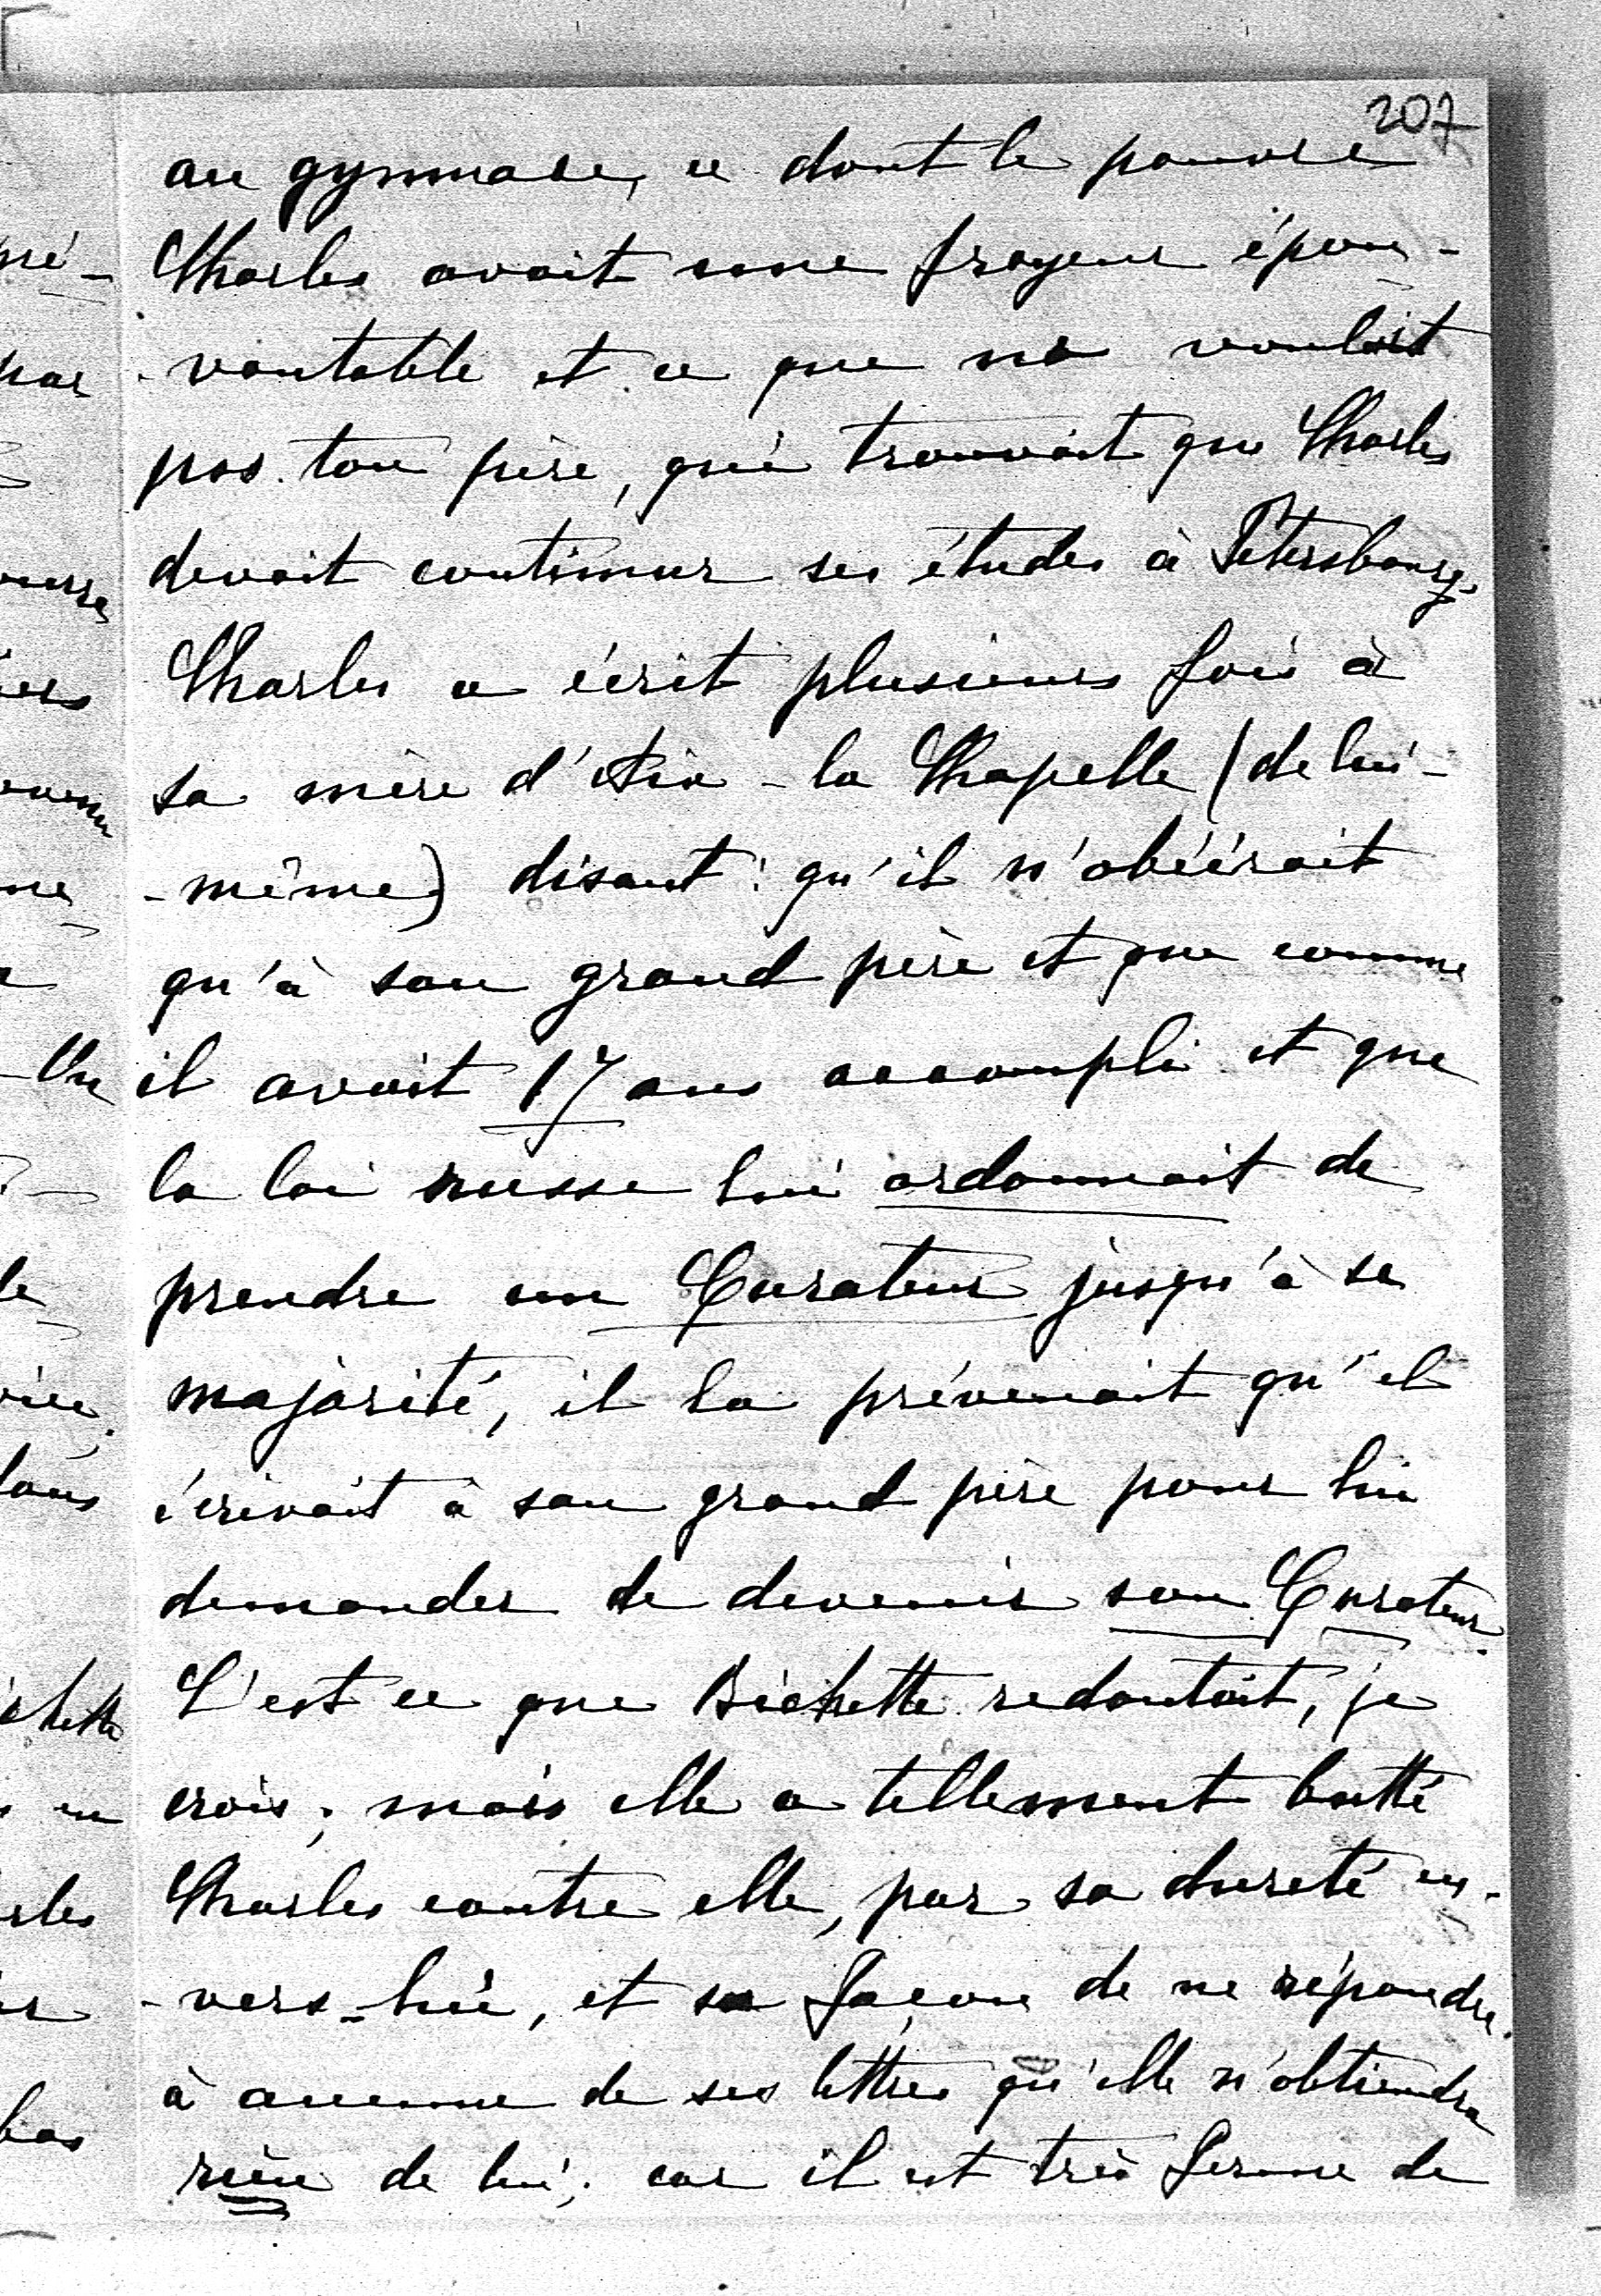 207
au gymnase, ce dont le pauvre
Charles avait une frayeur épou-
-vantable et ce que ne voulait
pas ton père, qui trouvait que Charles
devait continuer ses études à Pétersbourg.
Charles a écrit plusieurs fois à
sa mère d'Aix-la Chapelle (de lui-
-même) disant: qu'il n'obéirait
qu'à son grand père et que comme
il avait 17 ans accompli et que
la loi russe lui ordonnait de
prendre un Curateur jusqu'à sa
majorité, il la prévenait qu'il
écrivait à son grand père pour lui
demander de devenir son Curateur.
C'est ce que Bichette redoutait, je
crois; mais elle a tellement butté
Charles contre elle, par sa dureté en-
-vers-lui, et sa façon de ne répondre
à aucune de ses lettres qu'elle n'obtiendra
rien de lui; car il est très ferme de